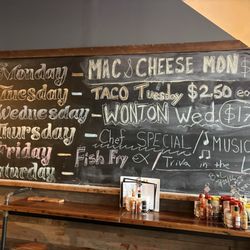 Monday - MAC & CHEESE MON $
Tuesday - TACO Tuesday $2.50 ea
Wednesday - WONTON Wed. $1
Thursday - Chef SPECIAL / MUSIC
Friday - Fish Fry / Trivia in the
Saturday -